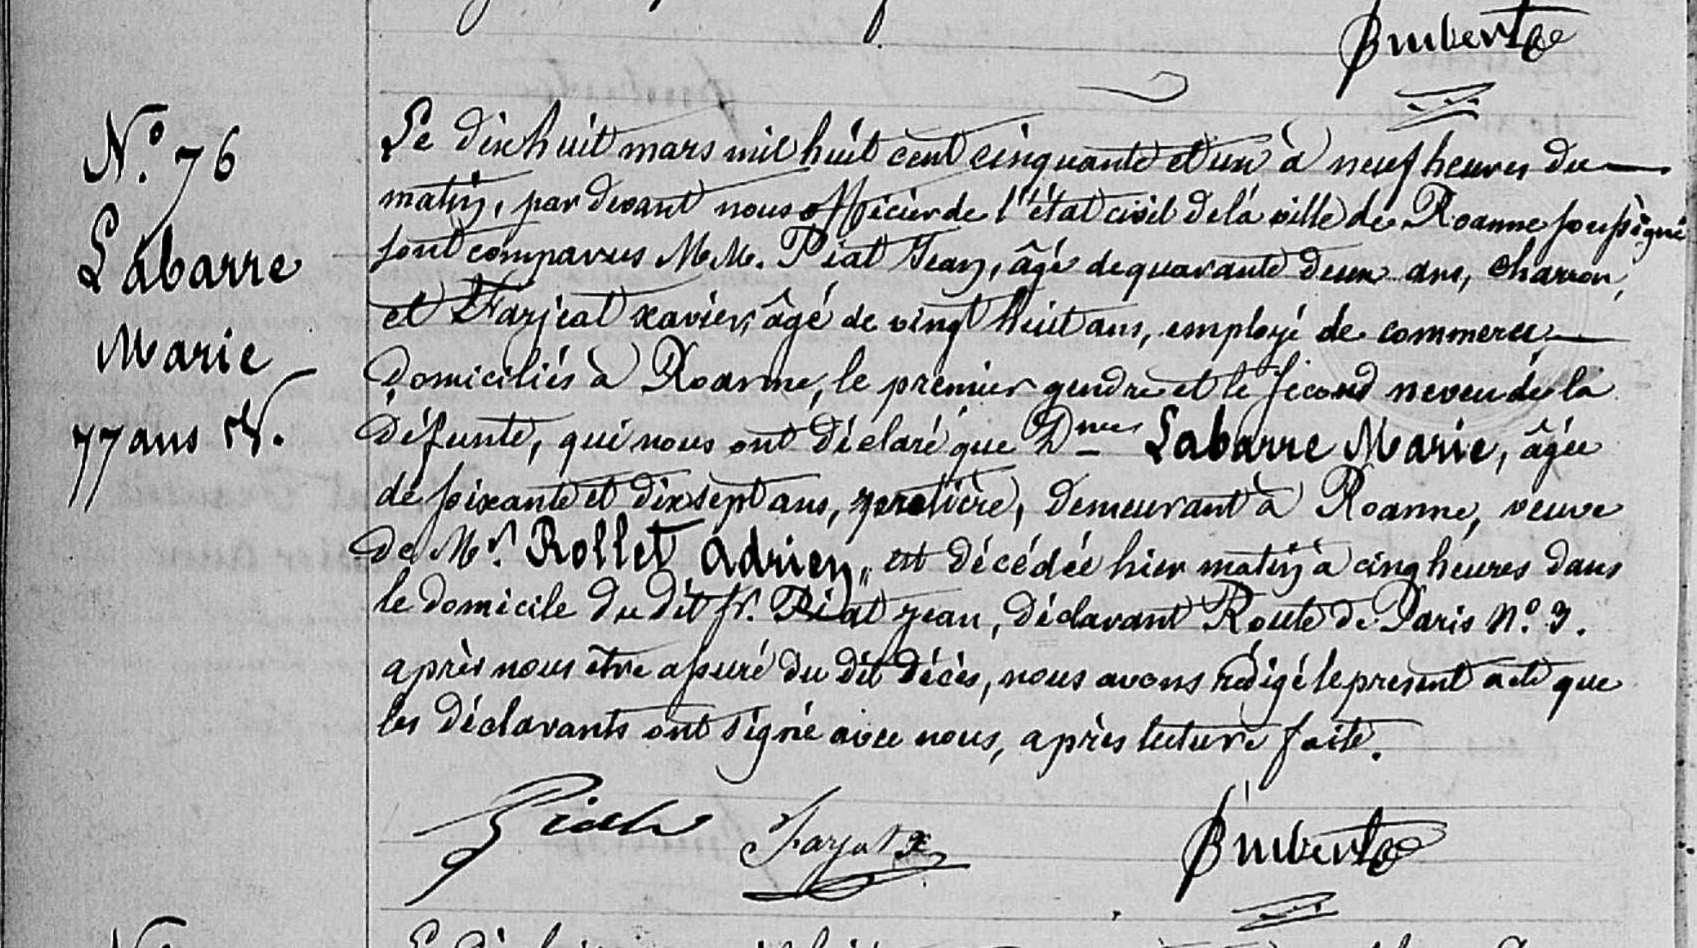 Imbert
N.º 76
Labarre
Marie
77 ans Vᵉ.
Le dixhuit mars mil huit cent cinquante et un à neuf heures du
matin, par devant nous officier de l'état civil de la ville de Roanne soussigné
sont comparus M M. Piat Jean, âgé de quarante deux ans, charron,
et Farjeat xavier, âgé de vingt huit ans, employé de commerce
domiciliés à Roanne, le premier gendre et le second neveu de la
défunte, qui nous ont déclaré que Dme Labarre Marie, âgée
de soixante et dix sept ans, rentière, demeurant à Roanne, veuve
de Mr. Rollet Adrien, est décédée hier matin à cinq heures dans
le domicile du dit sr. Piat Jean, déclarant Route de Paris N.º 3.
après nous être assuré du dit décès, nous avons rédigé le présent acte que
les déclarants ont signé avec nous, après lecture faite.
Piat Farjat x Imbert